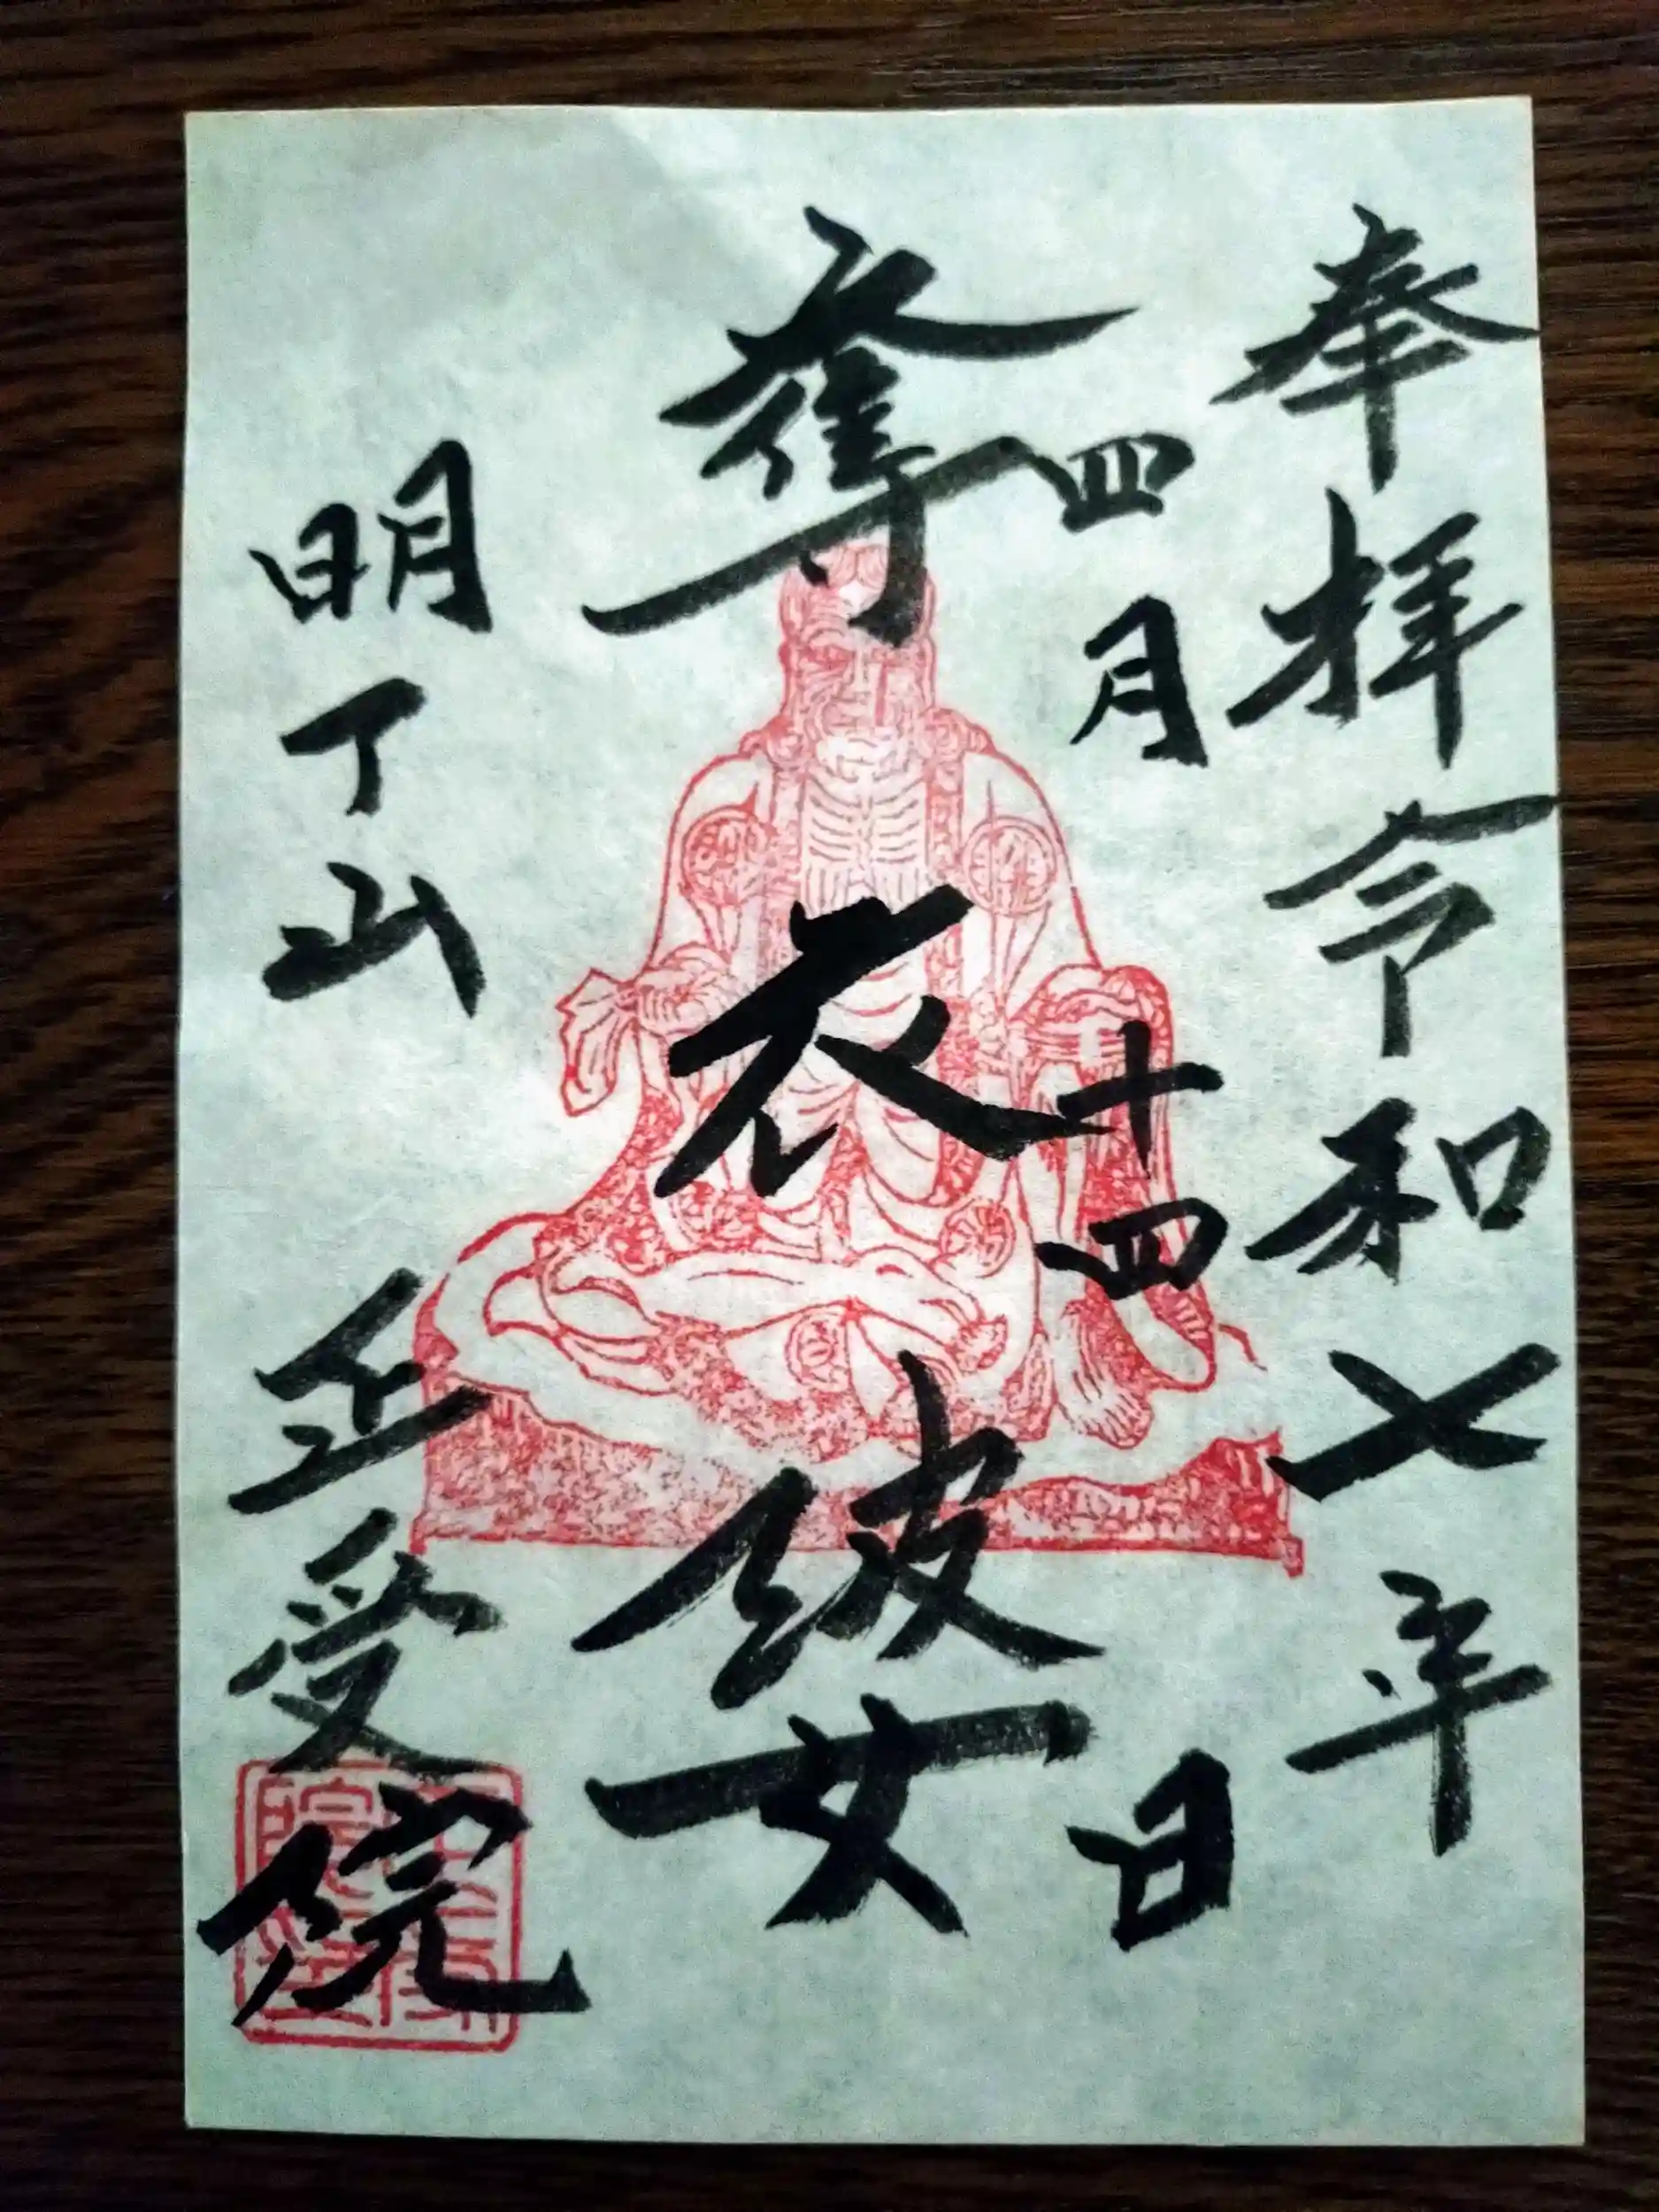 奉拝 令和七年
四月十四日
奪衣婆
明了山
正受院